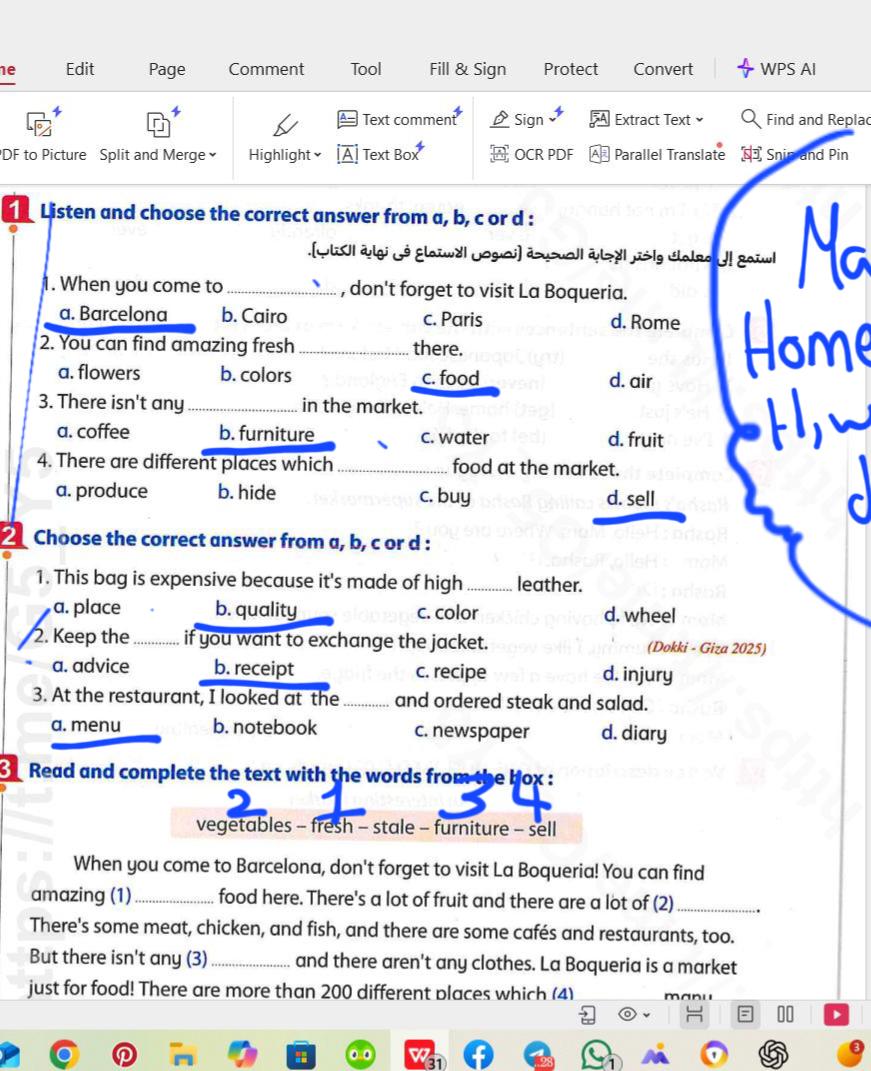 Edit Page Comment Tool Fill & Sign Protect Convert WPS AI
Text comment Sign Extract Text Find and Replac
PDF to Picture Split and Merge Highlight Text Box OCR PDF Parallel Translate Snip and Pin
1 Listen and choose the correct answer from a, b, c or d :
استمع إلى معلمك واختر الإجابة الصحيحة (نصوص الاستماع فى نهاية الكتاب).
1. When you come to ...................... , don't forget to visit La Boqueria.
a. Barcelona b. Cairo c. Paris d. Rome
2. You can find amazing fresh ...................... there.
a. flowers b. colors c. food d. air
3. There isn't any ...................... in the market.
a. coffee b. furniture c. water d. fruit
4. There are different places which ...................... food at the market.
a. produce b. hide c. buy d. sell
2 Choose the correct answer from a, b, c or d :
1. This bag is expensive because it's made of high .......... leather.
a. place b. quality c. color d. wheel
2. Keep the .......... if you want to exchange the jacket. (Dokki - Giza 2025)
a. advice b. receipt c. recipe d. injury
3. At the restaurant, I looked at the .......... and ordered steak and salad.
a. menu b. notebook c. newspaper d. diary
3 Read and complete the text with the words from the box :
2 1 3 4
vegetables – fresh – stale – furniture – sell
When you come to Barcelona, don't forget to visit La Boqueria! You can find
amazing (1) ................ food here. There's a lot of fruit and there are a lot of (2) ................ .
There's some meat, chicken, and fish, and there are some cafés and restaurants, too.
But there isn't any (3) ................ and there aren't any clothes. La Boqueria is a market
just for food! There are more than 200 different places which (4) ................ many
Ma
Home
H,w
d
31
28
1
3